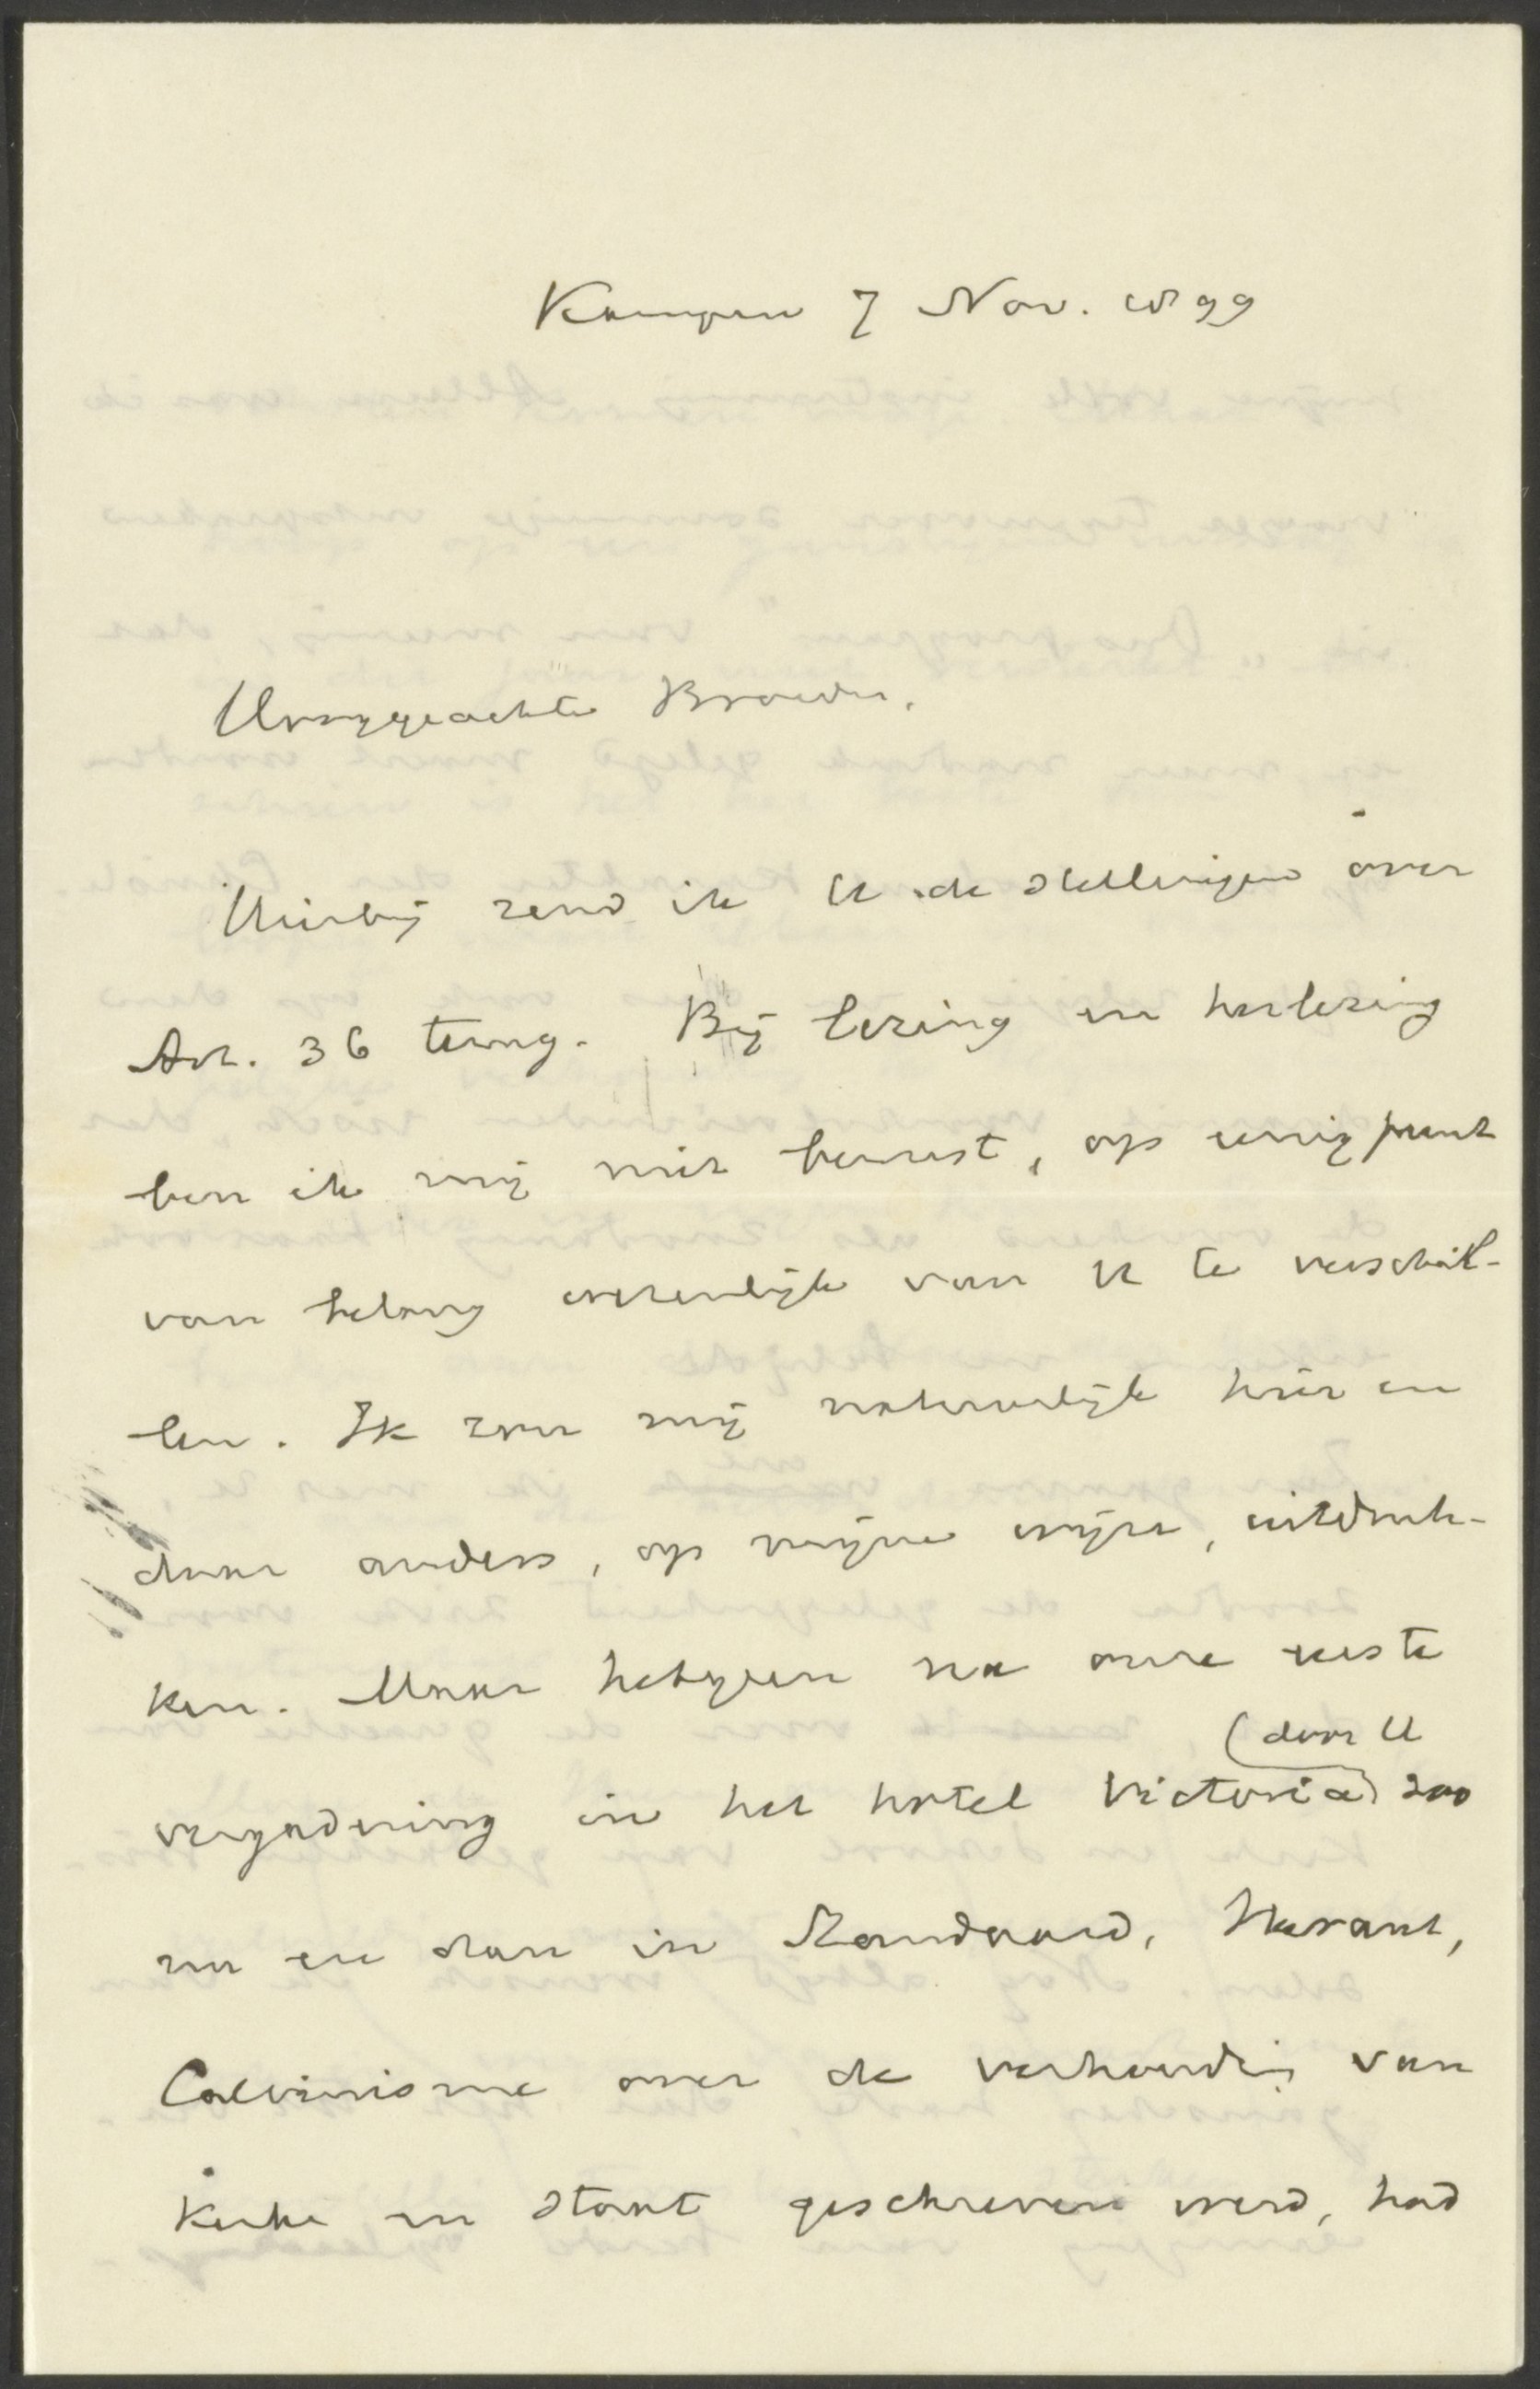 Kampen 7 Nov. 1899
Hooggeachte Broeder,
Hierbij zend ik U de stellingen over
Art. 36 terug. Bij lezing en herlezing
ben ik mij niet bewust, op eenig punt
van belang wezenlijk van U te verschil-
len. Ik zou mij natuurlijk hier en
daar anders, op mijne wijze, uitdruk-
ken. Maar hetgeen na onze eerste
(door U
vergadering in het hotel Victoria) zoo
nu en dan in Standaard, Heraut,
Calvinisme over de verhoudg van
Kerk en Staat geschreven werd, had